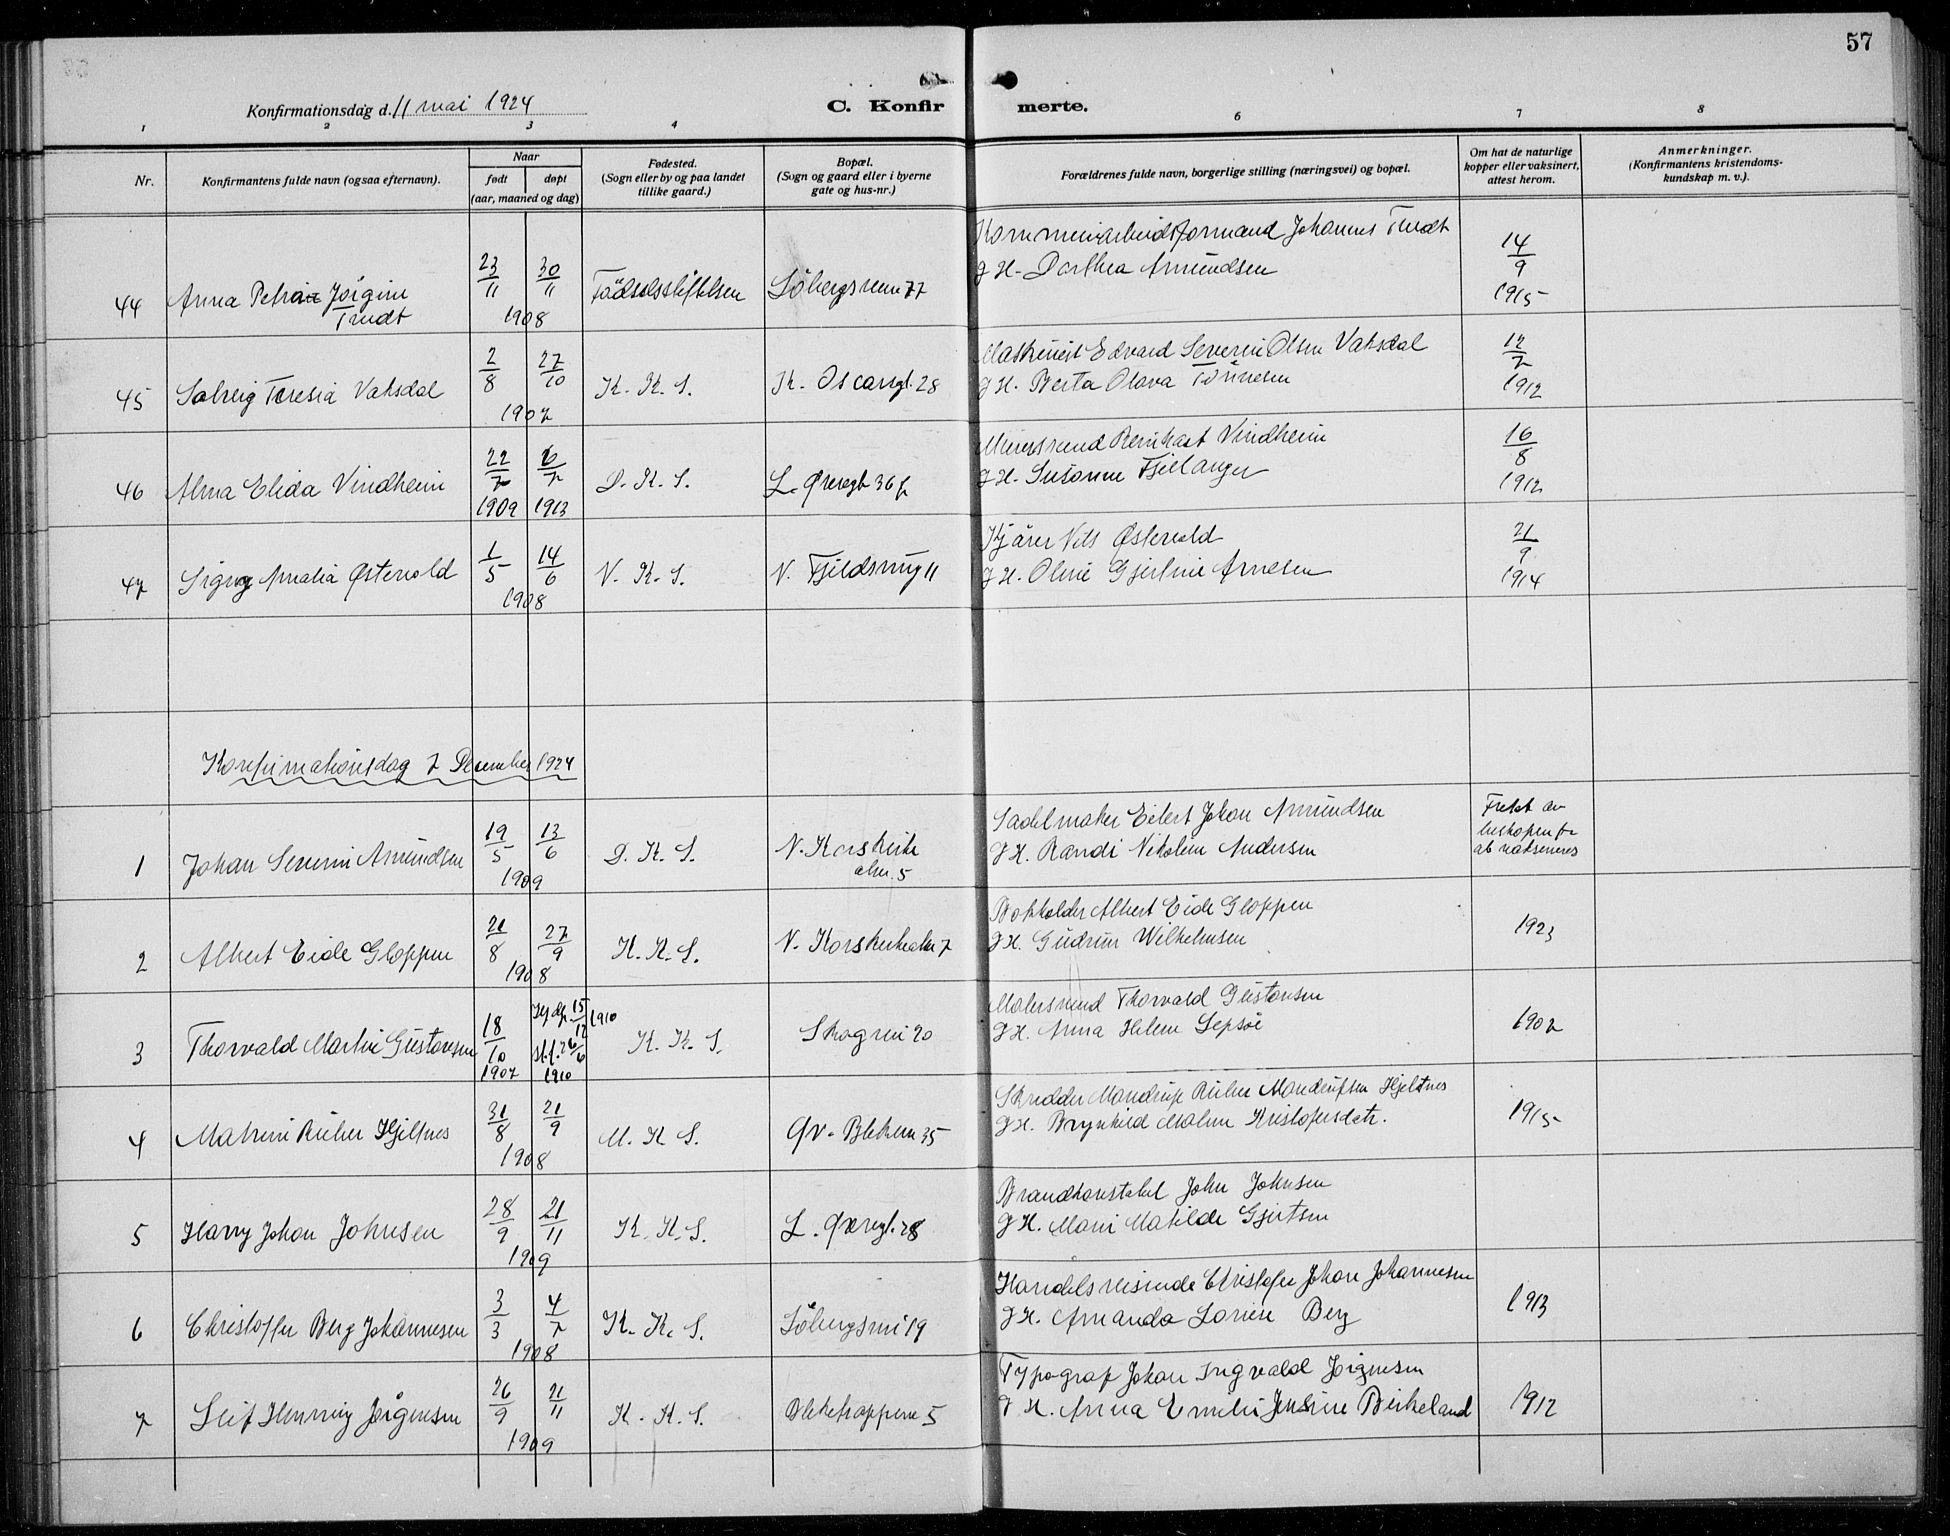 57
Konfirmationsdag d. 11 mai 1924
C. Konfirmerte.
1 2 3 4 6 7 8
Nr.
Konfirmantens fulde navn (ogsaa efternavn).
Naar
født døpt
(aar, maaned og dag)
Fødested.
(Sogn eller by og paa landet
tillike gaard.)
Bopæl.
(Sogn og gaard eller i byerne
gate og hus-nr.)
Forældrenes fulde navn, borgerlige stilling (næringsvei) og bopæl.
Om hat de naturlige
kopper eller vaksinert,
attest herom.
Anmerkninger.
(Konfirmantens kristendoms-
kundskap m. v.).
44 Anna Petra Jørgine
Trudt
23/11 30/11
1908
Födselsstiftelsen
Löbergsveien 77
Johannes Trudt
g H. Dorthea Amundsen
14/9
1915
45 Solveig Teresia Vaksdal
2/8 27/10
1907
K. K. S.
K. Oscarsgt. 28
Maskinist Edvard Severin Olsen Vaksdal
g H. Berta Olava Tönnesen
12/7
1912
46 Alma Elida Vindheim
22/7 6/7
1909 1913
D. K. S.
L. Øvregt 36 f
Murersvend Bernhart Vindheim
g H. Susanne Fjellanger
16/8
1912
47 Signy Amalia Østevold
1/5 14/6
1908
N. K. S.
N. Fjeldsmug 11
Kjörer Nils Østevold
g H. Oline Gjertine Arnesen
21/9
1914
Konfirmationsdag 7 December 1924
1 Johan Severin Amundsen
19/5 13/6
1909
D. K. S.
N. Korskirke
alm. 5
Sadelmaker Eilert Johan Amundsen
g H. Randi Nikoline Andersen
Fritat av
biskopen for
at vaksineres
2 Albert Eide Gloppen
21/8 27/9
1908
K. K. S.
N. Korskirkealm 7
Bokholder Albert Eide Gloppen
g H. Gudrun Wilhelmsen
1923
3 Thorvald Martin Gustavsen
18/10 1907
Hj.dp. 15/12 1910
st.f. 26/6
1910
K. K. S.
Skogvei 20
Malersvend Thorvald Gustavsen
g H. Anna Helene Lepsöe
1907
4 Hjeltnes
31/8 21/9
1908
M. K. S.
Øv. Blekevei 35
Skredder Mandrup Hjeltnes
g H. Brynhild Malene Kristofersdatr.
1915
5 Harry Johan Johnsen
28/9 21/11
1909
K. K. S.
L. Øvregt. 28
Brandkonstabel John Johnsen
g H. Marie Matilde Gjertsen
6 Christoffer Berg Johannesen
3/3 4/7
1908
K. K. S.
Löbergsvei 19
Handelsreisende Christofer Johan Johannesen
g H. Amanda Lovise Berg
1913
7 Leif Henning Jørgensen
26/9 21/11
1909
K. K. S.
Bleketrappene 5
Typograf Johan Ingvald Jørgensen
g H. Anna Emilie Jensine Birkeland
1912